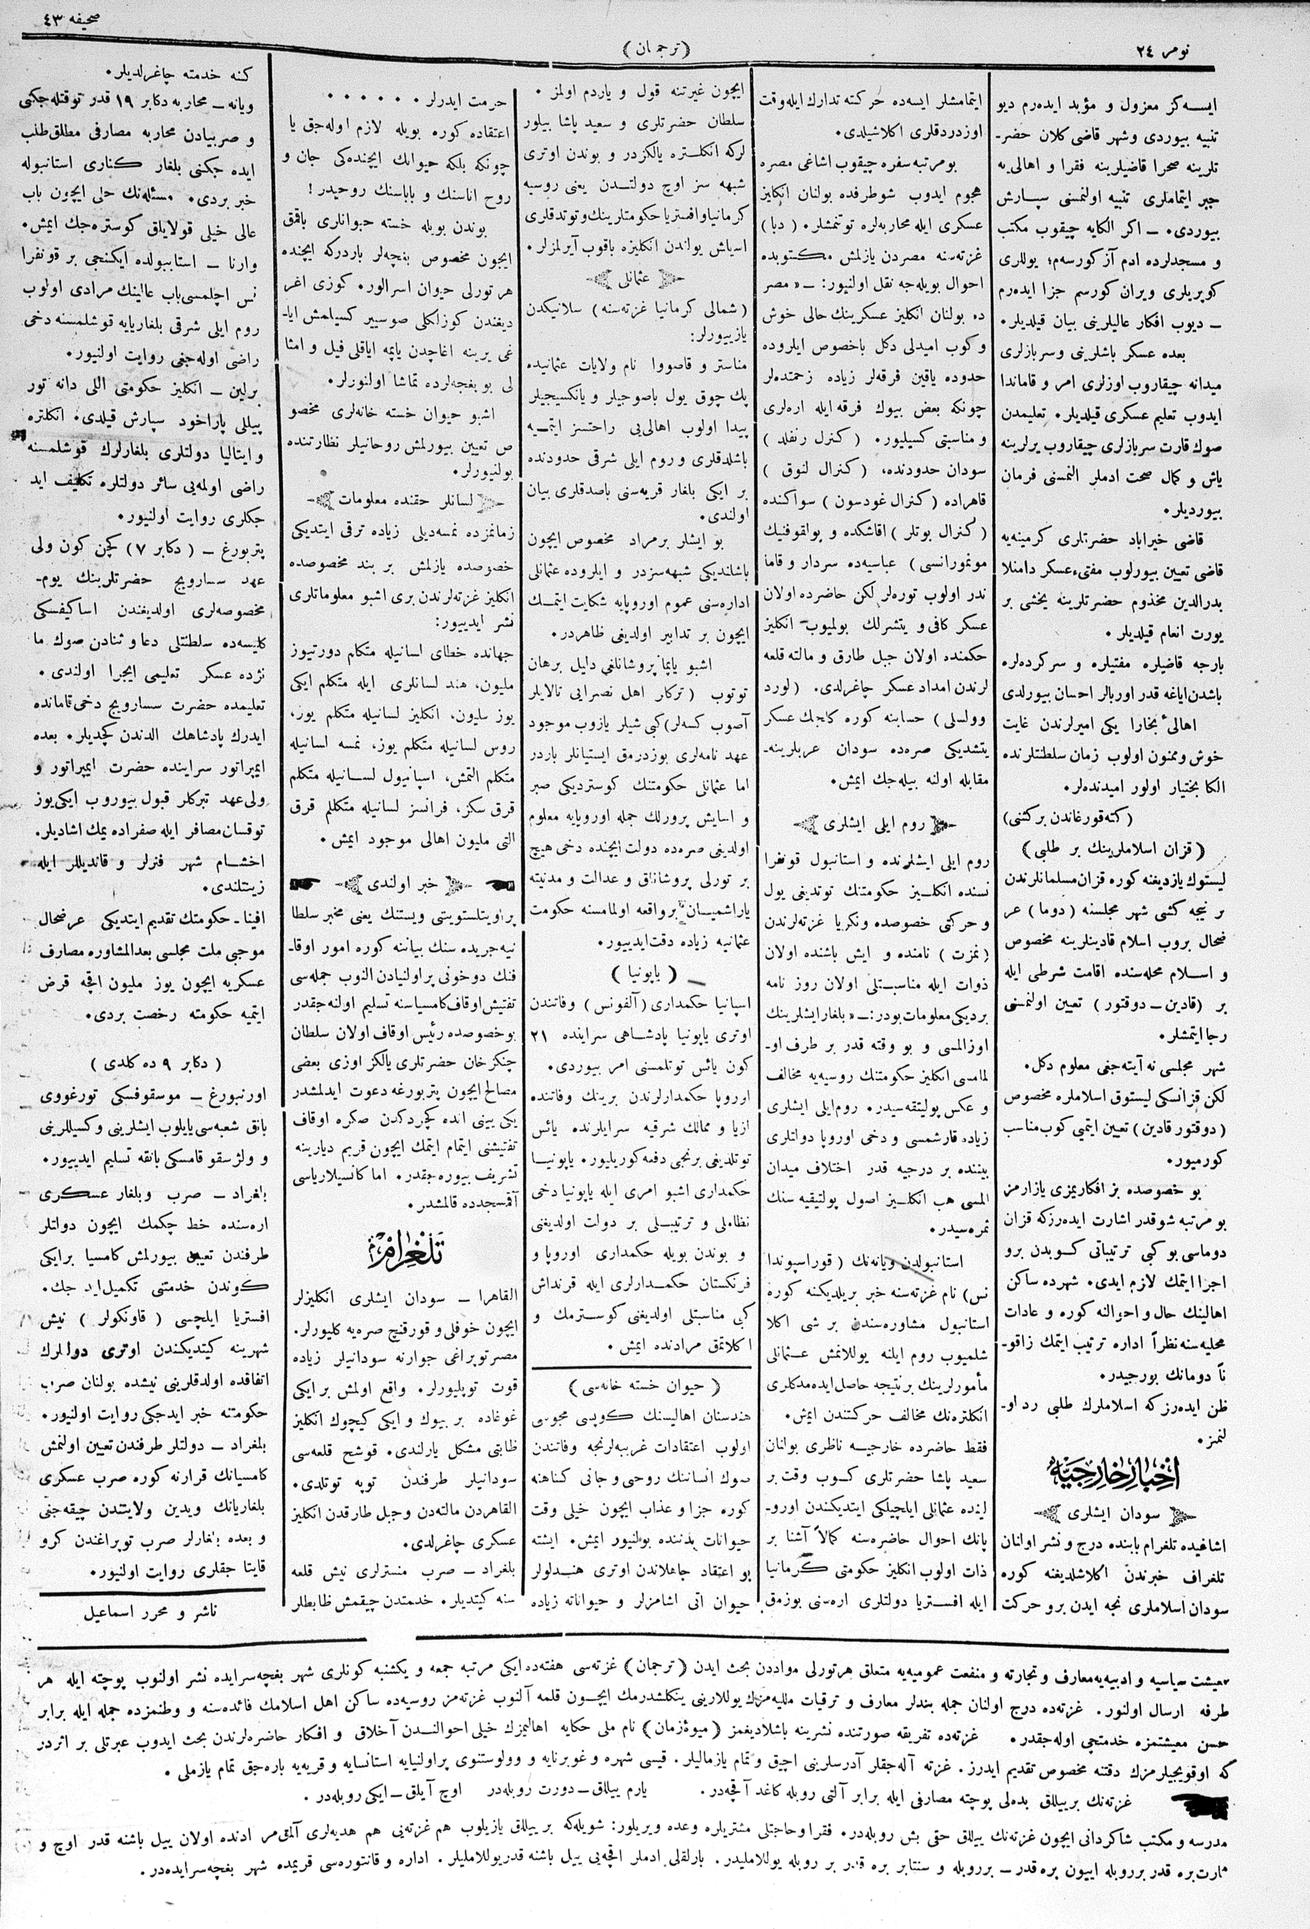 نومر ٢٤
(ترجمان)
صحیفه ٤٣
ایسه‌كز معزول و مؤبد ایده‌رم دیو
تنبیه بیوردی وشهر قاضی كلان حضر-
تلرینه صحرا قاضیلرینه فقرا و اهالی‌یه
جبر ایتماملری تنبیه اولنمسنی سپارش
بیوردی. — اكر الكایه چیقوب مكتب
و مسجدلرده ادم آز كورسه‌م؛ یوللری
كوپریلری ویران كورسم جزا ایده‌رم
— دیوب افكار عالیلرینی بیان قیلدیلر.
بعده عسكر باشلرینی وسربازلری
میدانه چیقاروب اوزلری امر و قاماندا
ایدوب تعلیم عسكری قیلدیلر. تعلیمدن
صوك قارت سربازلری چیقاروب یرلرینه
یاش و كمال صحت ادملر التمسنی فرمان
بیوردیلر.
قاضی خیراباد حضرتلری كرمینه‌یه
قاضی تعیین بیورلوب مفتیء عسكر داملا
بدرالدین مخذوم حضرتلرینه یخشی بر
یورت انعام قیلدیلر.
بارجه قاضیلره مفتیلره و سركرده‌لره
باشدن ایاغه قدر اوربالر احسان بیورلدی
اهالئ بخارا یكی امیرلرندن غایت
خوش وممنون اولوب زمان سلطنتلرنده
الكا بختیار اولور امیدنده‌لر.
(كته‌قورغاندن بر كشی)
(قزان اسلاملرینك بر طلبی)
لیستوك یازدیغنه كوره قزان مسلمانلرندن
بر نیجه كشی شهر مجلسنه (دوما) عر
ضحال بروب اسلام قادینلرینه مخصوص
و اسلام محله‌سنده اقامت شرطی ایله
بر (قادین — دوقتور) تعیین اولنمسنی
رجا ایتمشلر.
شهر مجلسی نه آیته‌جغی معلوم دكل.
لكن قزانسكی لیستوق اسلاملره مخصوص
(دوقتور قادین) تعیین ایتمی كوب مناسب
كورمیور.
بو خصوصده بز افكاریمزی یازارمز
بو مرتبه شو قدر اشارت ایده‌رزكه قزان
دوماسی بو كبی ترتیباتی كوبدن برو
اجرا ایتمك لازم ایدی. شهرده ساكن
اهالینك حال و احوالنه كوره و عادات
محلیه‌سنه نظراً اداره ترتیب ایتمك زاقو-
ناً دومانك بورجیدر.
ظن ایده‌رزكه اسلاملرك طلبی رد او-
لنمز.
اخبار خارجیه
سودان ایشلری
اشاغیده تلغرام بابنده درج و نشر اولنان
تلغراف خبرندن اكلاشلدیغنه كوره
سودان اسلاملری نجه ایدن برو حركت
ایتمامشلر ایسه‌ده حركته تدارك ایله وقت
اوزدردقلری اكلاشیلدی.
بو مرتبه سفره چیقوب اشاغی مصره
هجوم ایدوب شوطرفده بولنان انكلیز
عسكری ایله محاربه‌لره توتنمشلر. (دبا)
غزته‌سنه مصردن یازلمش مكتوبده
احوال بویله‌جه نقل اولنیور: — «مصر
ده بولنان انكلیز عسكرینك حالی خوش
وكوب امیدلی دكل باخصوص ایلروده
حدوده یاقین فرقه‌لر زیاده زحمتده‌لر
چونكه بعض بیوك فرقه ایله اره‌لری
و مناسبتی كسیلیور. (كنرل رنفلد)
سودان حدودنده، (كنرال لنوق)
قاهراده (كنرال غودسون) سواكنده
(كنرال بوتلر) اقاشكده و پولقوفنیك
مونمورانسی) عباسیه‌ده سردار و قاما
ندر اولوب توره‌لر لكن حاضرده اولان
عسكر كافی و یتشرلك بولمیوب انكلیز
حكمنده اولان جبل طارق و مالته قلعه
لرندن امداد عسكر چاغرلدی. (لورد
وولسلی) حسابنه كوره كله‌جك عسكر
یتشدیكی صره‌ده سودان عربلرینه-
مقابله اولنه بیله‌جك ایمش.
روم ایلی ایشلری
روم ایلی ایشلرنده و استانبول قونفرا
نسنده انكلیز حكومتنك توتدیغی یول
و حركتی خصوصده ونكریا غزته‌لرندن
(نمزت) نامنده و ایش باشنده اولان
ذوات ایله مناسبتلی اولان روز نامه
بردیكی معلومات بودر: — «بلغار ایشلرینك
اوزالمسی و بو وقته قدر بر طرف او-
لمامسی انكلیز حكومتنك روسیه‌یه مخالف
و عكس پولیتقه‌سیدر. روم‌ایلی ایشلری
زیاده قارشمسی و دخی اوروپا دولتلری
بیننده بر درجیه قدر اختلاف میدان
المسی هب انكلیز اصول پولتیقه سنك
ثمره‌سیدر.
استانبولدن ویانه‌نك (قوراسپوندا
نس) نام غزته‌سنه خبر بریلدیكنه كوره
استانبول مشاوره‌سندن بر شی اكلا
شلمیوب روم ایلنه یوللانمش عثمانلی
مأمورلرینك بر نتیجه حاصل ایده‌مدكلری
انكلتره‌نك مخالف حركتندن ایمش.
فقط حاضرده خارجیه ناظری بولنان
سعید پاشا حضرتلری كوب وقت بر
لینده عثمانلی ایلچیلكی ایتدیكندن اورو-
پانك احوال حاضره‌سنه كمالاً آشنا بر
ذات اولوب انكلیز حكومتی كرمانیا
ایله افستریا دولتلری اره‌سنی بوزمق
ایچون غیرتنه قول و یاردم اولمز.
سلطان حضرتلری و سعید پاشا بیلور
لركه انكلتره یالكزدر و بوندن اوتری
شبهه سز اوچ دولتدن یعنی روسیه
كرمانیا وافستریا حكومتلرینك وتوتدقلری
اسیاش یولندن انكلیزه باقوب آیرلمزلر.
عثمانلی
(شمالی كرمانیا غزته‌سنه) سلانیكدن
یازیبورلر:
مناستر و قاصووا نام ولایات عثمانیده
پك چوق یول باصوجیلر و یانكسیجیلر
پیدا اولوب اهالی‌یی راحتسز ایتمیه
باشلدقلری و روم ایلی شرقی حدودنده
بر ایكی بلغار قریه‌سنی باصدقلری بیان
اولندی.
بو ایشلر برمراد مخصوص ایچون
باشلندیكی شبهه‌سزدر و ایلروده عثمانلی
اداره‌سنی عموم اوروپایه شكایت ایتمك
ایچون بر تدابیر اولدیغی ظاهردر.
اشبو یاپما پروشانلغی دلیل برهان
توتوب (تركلر اهل نصرایی تالایلر
آصوب كسه‌لر) كبی شیلر یازوب موجود
عهد نامه‌لری بوزدرمق ایستیانلر باردر
اما عثمانلی حكومتنك كوستردیكی صبر
و اسایش پرورلك جمله اوروپایه معلوم
اولدیغی صره‌ده دولت ایچنده دخی هیچ
بر تورلی پروشانلق و عدالت و مدنیته
یاراشمیان برواقعه اولمامسنه حكومت
عثمانیه زیاده دقت ایدیبور.
(یاپونیا)
اسپانیا حكمداری (آلفونس) وفاتندن
اوتری یاپونیا پادشاهی سراینده ٢١
كون یائس توتلمسنی امر بیوردی.
اوروپا حكمدارلرندن برینك وفاتنده
ازیا و ممالك شرقیه سرایلرنده یائس
توتلدیغی برنجی دفعه كوریلیور. یاپونیا
حكمداری اشبو امری ایله یاپونیا دخی
نظاملی و ترتیبلی بر دولت اولدیغی
و بوندن بویله حكمداری اوروپا و
فرنكستان حكمدارلری ایله قرنداش
كبی مناسبتلی اولدیغی كوسترمك و
اكلاتمق مرادنده ایمش.
(حیوان خسته خانه‌سی)
هندستان اهالیسنك كوبیسی مجوسی
اولوب اعتقادات غریبه‌لرنجه وفاتندن
صوك انساننك روحی و جانی كناهنه
كوره جزا و عذاب ایچون خیلی وقت
حیوانات بدننده بولنیور ایمش. ایشته
بو اعتقاد جاهلاندن اوتری هندلولر
حیوان اتی اشامزلر و حیواناته زیاده
حرمت ایدرلر......
اعتقاده كوره بویله لازم اوله‌جق یا
چونكه بلكه حیوانك ایچنده‌كی جان و
روح اناسنك و باباسنك روحیدر!
بوندن بویله خسته حیوانلری باقمق
ایچون مخصوص بغچه‌لر باردركه ایچنده
هر تورلی حیوان اسرالور. كوزی اغر
دیغندن كوزلكلی صوسییر كسیلمش ایا-
غی یرینه اغاچدن یاپمه ایاقلی فیل و امثا
لی بو بغچه‌لرده تماشا اولنورلر.
اشبو حیوان خسته خانه‌لری مخصو
ص تعیین بیورلمش روحانیلر نظارتنده
بولنیورلر.
لسانلر حقنده معلومات
زمانمزده نمسه‌دیلی زیاده ترقی ایتدیكی
خصوصده یازلمش بر بند مخصوصده
انكلیز غزته‌لرندن بری اشبو معلوماتلری
نشر ایدییور:
جهانده خطای لسانیله متكلم دورتیوز
ملیون، هند لسانلری ایله متكلم ایكی
یوز ملیون، انكلیز لسانیله متكلم یوز،
روس لسانیله متكلم یوز، نمسه لسانیله
متكلم التمش، اسپانیول لسانیله متكلم
قرق سكز، فرانسز لسانیله متكلم قرق
التی ملیون اهالی موجود ایمش.
خبر اولندی
پراویتلستوینی ویستنك یعنی مخبر سلطا
نیه جریده سنك بیاننه كوره امور اوقا-
فنك دوخونی پراولنیادن النوب جمله‌سی
تفتیش اوقاف كامسیاسنه تسلیم اولنه جقدر
بو خصوصده رئیس اوقاف اولان سلطان
چنكز خان حضرتلری یالكز اوزی بعضی
مصالح ایچون پتربورغه دعوت ایدلمشدر
یكی ییلنی انده كچردكدن صكره اوقاف
تفتیشنی اتمام ایتمك ایچون قریم دیارینه
تشریف بیوره جقدر. اما كانسیلاریاسی
آقمسجدده قالمشدر.
تلغرام
القاهرا — سودان ایشلری انكلیزلر
ایچون خوفلی و قورقنج صره‌یه كلیورلر.
مصر توپراغی جوارنه سودانیلر زیاده
قوت توپلیورلر. واقع اولمش بر ایكی
غوغاده بر بیوك و ایكی كیچوك انكلیز
ظابتی مشكل یارلندی. قوشح قلعه‌سی
سودانیلر طرفندن توپه توتلدی.
القاهردن مالته‌دن وجبل طارقدن انكلیز
عسكری چاغرلدی.
بلغراد — صرب منسترلری نیش قلعه
سنه كیتدیلر. خدمتدن چیقمش ظابطلر
كنه خدمته چاغرلدیلر.
ویانه — محاربه دكابر ١٩ قدر توقتله‌جكنی
و صربیادن محاربه مصارفی مطلق طلب
ایده جكنی بلغار كنازی استانبوله
خبر بردی. مسئله‌نك حلی ایچون باب
عالی خیلی قولایلق كوستره‌جك ایمش.
وارنا — استانبولده ایكنجی بر قونفرا
نس اچلمسی باب عالینك مرادی اولوب
روم ایلی شرقی بلغاریایه قوشلمسنه دخی
راضی اوله‌جغی روایت اولنیور.
برلین — انكلیز حكومتی اللی دانه تور
پیللی پاراخود سپارش قیلدی. انكلتره
و ایتالیا دولتلری بلغارلرك قوشلمسنه
راضی اولمه‌یی سائر دولتلره تكلیف اید
جكلری روایت اولنیور.
پتربورغ — (دكابر ٧) كچن كون ولی
عهد سسارویچ حضرتلرینك یوم-
مخصوصه‌لری اولدیغندن اساكیفسكی
كلیسه‌ده سلطنتلی دعا و ثنادن صوك ما
نژده عسكر تعلیمی ایجرا اولندی.
تعلیمده حضرت سسارویچ دخی قامانده
ایدرك پادشاهك الدندن كچدیلر. بعده
ایمپراتور سراینده حضرت ایمپراتور و
ولی عهد تبركلر قبول بیوروب ایكی یوز
توقسان مسافر ایله صفراده یمك اشادیلر.
اخشام شهر فنرلر و قاندیللر ایله
زینتلندی.
افینا — حكومتك تقدیم ایتدیكی عرضحال
موجبی ملت مجلسی بعدالمشاوره مصارف
عسكریه ایچون یوز ملیون اقچه قرض
ایتمیه حكومته رخصت بردی.
(دكابر ٩ ده كلدی)
اورنبورغ — موسقوفسكی تورغووی
بانق شعبه‌سی یاپلوب ایشلرینی وكسیللرینی
و ولژسقو قامسكی بانقه تسلیم ایدییور.
بلغراد — صرب وبلغار عسكری
اره‌سنده خط چكمك ایچون دولتلر
طرفندن تعیین بیورلمش كامسیا بر ایكی
كوندن خدمتنی تكمیل اید جك.
افستریا ایلچسی (قاونكولر) نیش
شهرینه كیتدیكندن اوتری دولتلرك
اتفاقده اولدقلرینی نیشده بولنان صرب
حكومتنه خبر ایدجكی روایت اولنیور.
بلغراد — دولتلر طرفندن تعیین اولنمش
كامسیانك قرارنه كوره صرب عسكری
بلغاریانك ویدین ولایتندن چیقه‌جغی
و بعده بلغارلر صرب توپراغندن كرو
قایتا جقلری روایت اولنیور.
ناشر و محرر اسماعیل
معیشت سیاسیه و ادبیه‌یه معارف و تجارته و منفعت عمومیه‌یه متعلق هر تورلی مواددن بحث ایدن (ترجمان) غزته‌سی هفته‌ده ایكی مرتبه جمعه و یكشنبه كونلری شهر بغچه‌سرایده نشر اولنوب پوچته ایله هر
طرفه ارسال اولنور. غزته‌ده درج اولنان جمله بندلر معارف و ترقیات ملیه‌مزك یوللارینی ینكلشدرمك ایچون قلمه آلنوب غزته‌مز روسیه‌ده ساكن اهل اسلامك فائده‌سنه و وطنمزده جمله ایله برابر
حسن معیشتمزه خدمتجی اوله‌جقدر. غزته‌ده تفریقه صورتنده نشرینه باشلادیغمز (میوثزمان) نام ملی حكایه اهالیمزك خیلی احوالندن آخلاق و افكار حاضره‌لرندن بحث ایدوب عبرتلی بر اثردر
كه اوقویجیلرمزك دقتنه مخصوص تقدیم ایدرز. غزته آله‌جقلر آدرسلرینی اچیق و تمام یازمالیلر. قیسی شهره و غوبرنایه و وولوستنوی پراولنیایه استانسایه و قریه‌یه باره‌جق تمام یازملی.
غزته‌نك بر ییللق بده‌لی پوچته مصارفی ایله برابر آلتی روبله كاغد آقچه‌در. یارم ییللق — دورت روبله‌در اوچ آیلق — ایكی روبله‌در.
مدرسه و مكتب شاكردانی ایچون غزته‌نك ییللق حقی بش روبله‌در. فقرا وحاجتلی مشتریلره وعده ویریلور: شویله‌كه بر ییللق یازیلوب هم غزته‌یی هم هدیه‌لری آلمق‌مر ادنده اولان ییل باشنه قدر اوچ و
مارت‌بره قدر برروبله اییون بره قدر — برروبله و سنتابر بره قدر بر روبله یوللاملیدر. بارلقلی ادملر اقچه‌یی ییل باشنه قدریوللاملیلر. اداره و قانتوره‌سی قریمده شهر بغچه سرایده‌در.